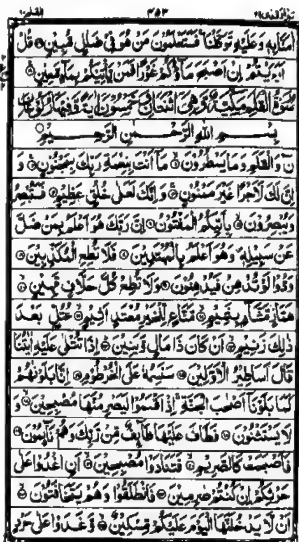 تبرك الذى ٢٩ ٤٥٣ القلم ٦٨
اٰمَنَّا بِهٖ وَعَلَيْهِ تَوَكَّلْنَا فَسَتَعْلَمُوْنَ مَنْ هُوَ فِيْ ضَلٰلٍ مُّبِيْنٍ قُلْ
اَرَءَيْتُمْ اِنْ اَصْبَحَ مَآؤُكُمْ غَوْرًا فَمَنْ يَّاْتِيْكُمْ بِمَآءٍ مَّعِيْنٍ
سُوْرَةُ الْقَلَمِ مَكِّيَّةٌ وَّهِيَ اثْنَتَانِ وَخَمْسُوْنَ اٰيَةً وَّفِيْهَا رُكُوْعَانِ
بِسْمِ اللهِ الرَّحْمٰنِ الرَّحِيْمِ
نٓ وَالْقَلَمِ وَمَا يَسْطُرُوْنَ مَآ اَنْتَ بِنِعْمَةِ رَبِّكَ بِمَجْنُوْنٍ وَ
اِنَّ لَكَ لَاَجْرًا غَيْرَ مَمْنُوْنٍ وَاِنَّكَ لَعَلٰى خُلُقٍ عَظِيْمٍ فَسَتُبْصِرُ
وَيُبْصِرُوْنَ بِاَيِّكُمُ الْمَفْتُوْنُ اِنَّ رَبَّكَ هُوَ اَعْلَمُ بِمَنْ ضَلَّ
عَنْ سَبِيْلِهٖ وَهُوَ اَعْلَمُ بِالْمُهْتَدِيْنَ فَلَا تُطِعِ الْمُكَذِّبِيْنَ
وَدُّوْا لَوْ تُدْهِنُ فَيُدْهِنُوْنَ وَلَا تُطِعْ كُلَّ حَلَّافٍ مَّهِيْنٍ
هَمَّازٍ مَّشَّآءٍ بِنَمِيْمٍ مَّنَّاعٍ لِّلْخَيْرِ مُعْتَدٍ اَثِيْمٍ عُتُلٍّ بَعْدَ
ذٰلِكَ زَنِيْمٍ اَنْ كَانَ ذَا مَالٍ وَّبَنِيْنَ اِذَا تُتْلٰى عَلَيْهِ اٰيٰتُنَا
قَالَ اَسَاطِيْرُ الْاَوَّلِيْنَ سَنَسِمُهٗ عَلَى الْخُرْطُوْمِ اِنَّا بَلَوْنٰهُمْ
كَمَا بَلَوْنَآ اَصْحٰبَ الْجَنَّةِ اِذْ اَقْسَمُوْا لَيَصْرِمُنَّهَا مُصْبِحِيْنَ وَ
لَا يَسْتَثْنُوْنَ فَطَافَ عَلَيْهَا طَآئِفٌ مِّنْ رَّبِّكَ وَهُمْ نَآئِمُوْنَ
فَاَصْبَحَتْ كَالصَّرِيْمِ فَتَنَادَوْا مُصْبِحِيْنَ اَنِ اغْدُوْا عَلٰى
حَرْثِكُمْ اِنْ كُنْتُمْ صٰرِمِيْنَ فَانْطَلَقُوْا وَهُمْ يَتَخَافَتُوْنَ
اَنْ لَّا يَدْخُلَنَّهَا الْيَوْمَ عَلَيْكُمْ مِّسْكِيْنٌ وَّغَدَوْا عَلٰى حَرْدٍ